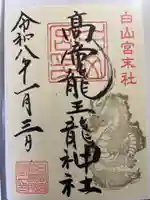 白山宮末社
高帝龍王龍神社
令和八年一月三日